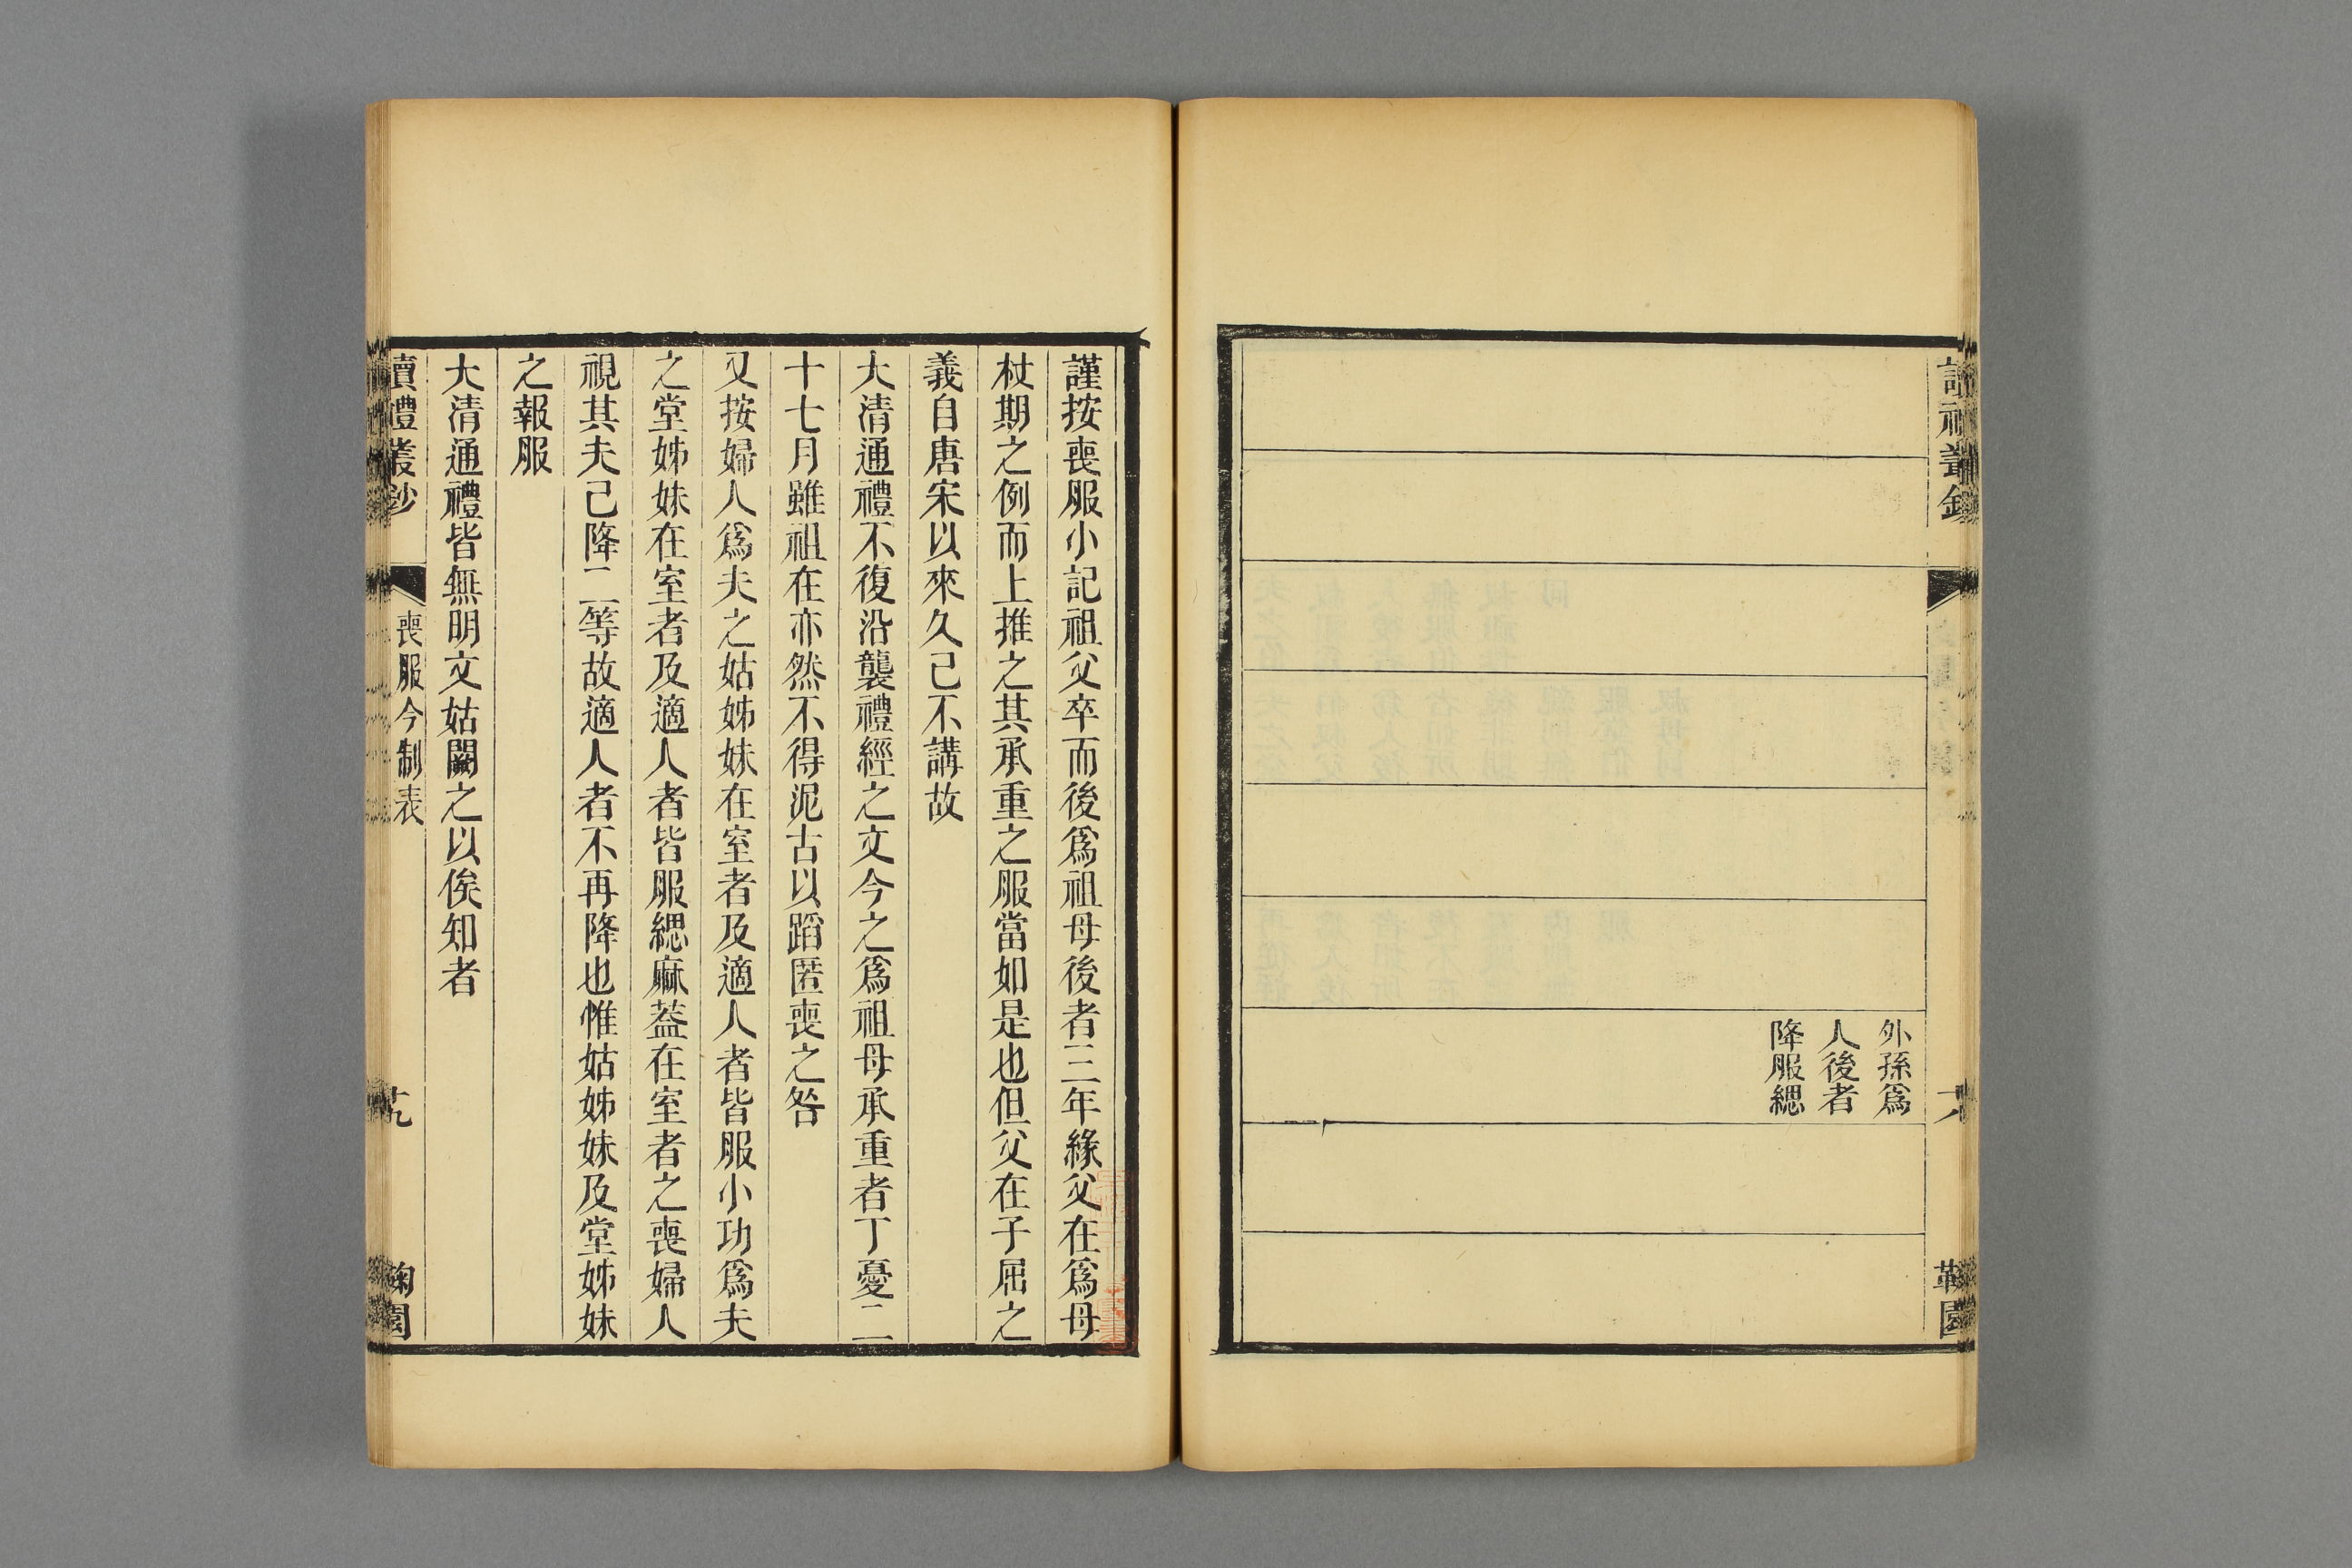 外孫爲
人後者
降服緦
謹按喪服小記祖父卒而後爲祖母後者三年緣父在爲母
杖期之例而上推之其承重之服當如是也但父在子屈之
義自唐宋以來久已不講故
大清通禮不復沿襲禮經之文今之爲祖母承重者丁憂二
十七月雖祖在亦然不得泥古以蹈匿喪之咎
又按婦人爲夫之姑姊妹在室者及適人者皆服小功爲夫
之堂姊妹在室者及適人者皆服緦麻蓋在室者之喪婦人
視其夫已降二等故適人者不再降也惟姑姊妹及堂姊妹
之報服
大清通禮皆無明文姑闕之以俟知者
讀禮叢鈔
喪服今制表
鞠園